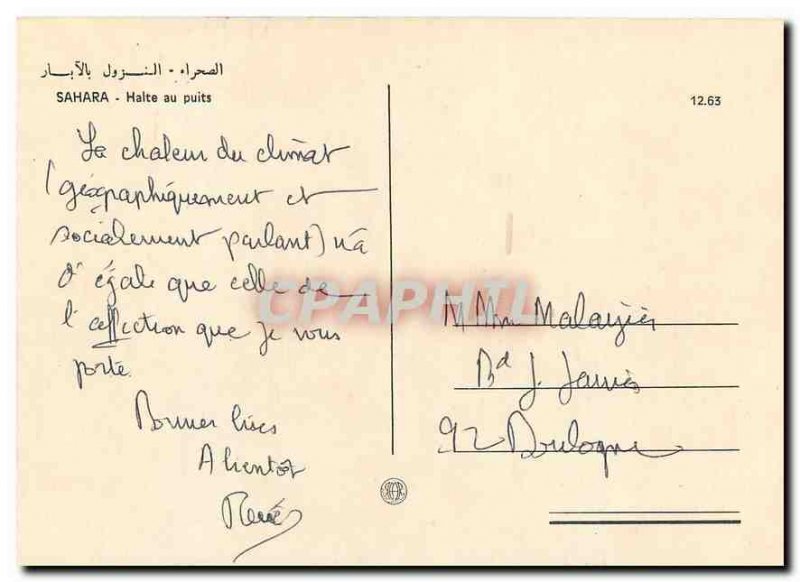 الصحراء - النـزول بالآبـار
SAHARA - Halte au puits
12.63
La chaleur du climat
(géographiquement et
socialement parlant) n'a
d'égale que celle de
l'affection que je vous
porte.
Bonnes bises
A bientôt
René
CPAPHIL.COM
M Mme
Bd J. Jaurès
92 Boulogne